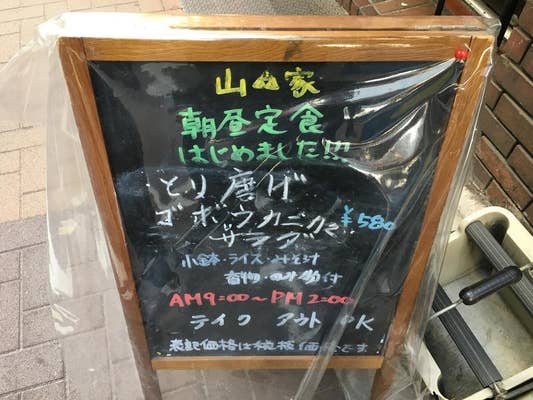 山の家
朝昼定食
はじめました!!!
とり唐揚げ
ゴボウカニカマ
サラダ ¥580
小鉢・ライス・みそ汁
香物・のみ物付
AM9=00〜PM2=00
テイク アウト OK
表記価格は税抜価格です